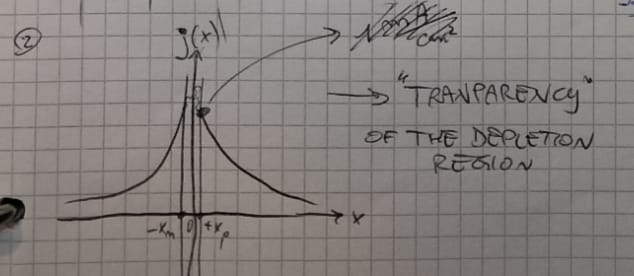 ②
j(x)
→ "TRANPARENCY"
OF THE DEPLETION
REGION
-xₙ 0 +xₚ x